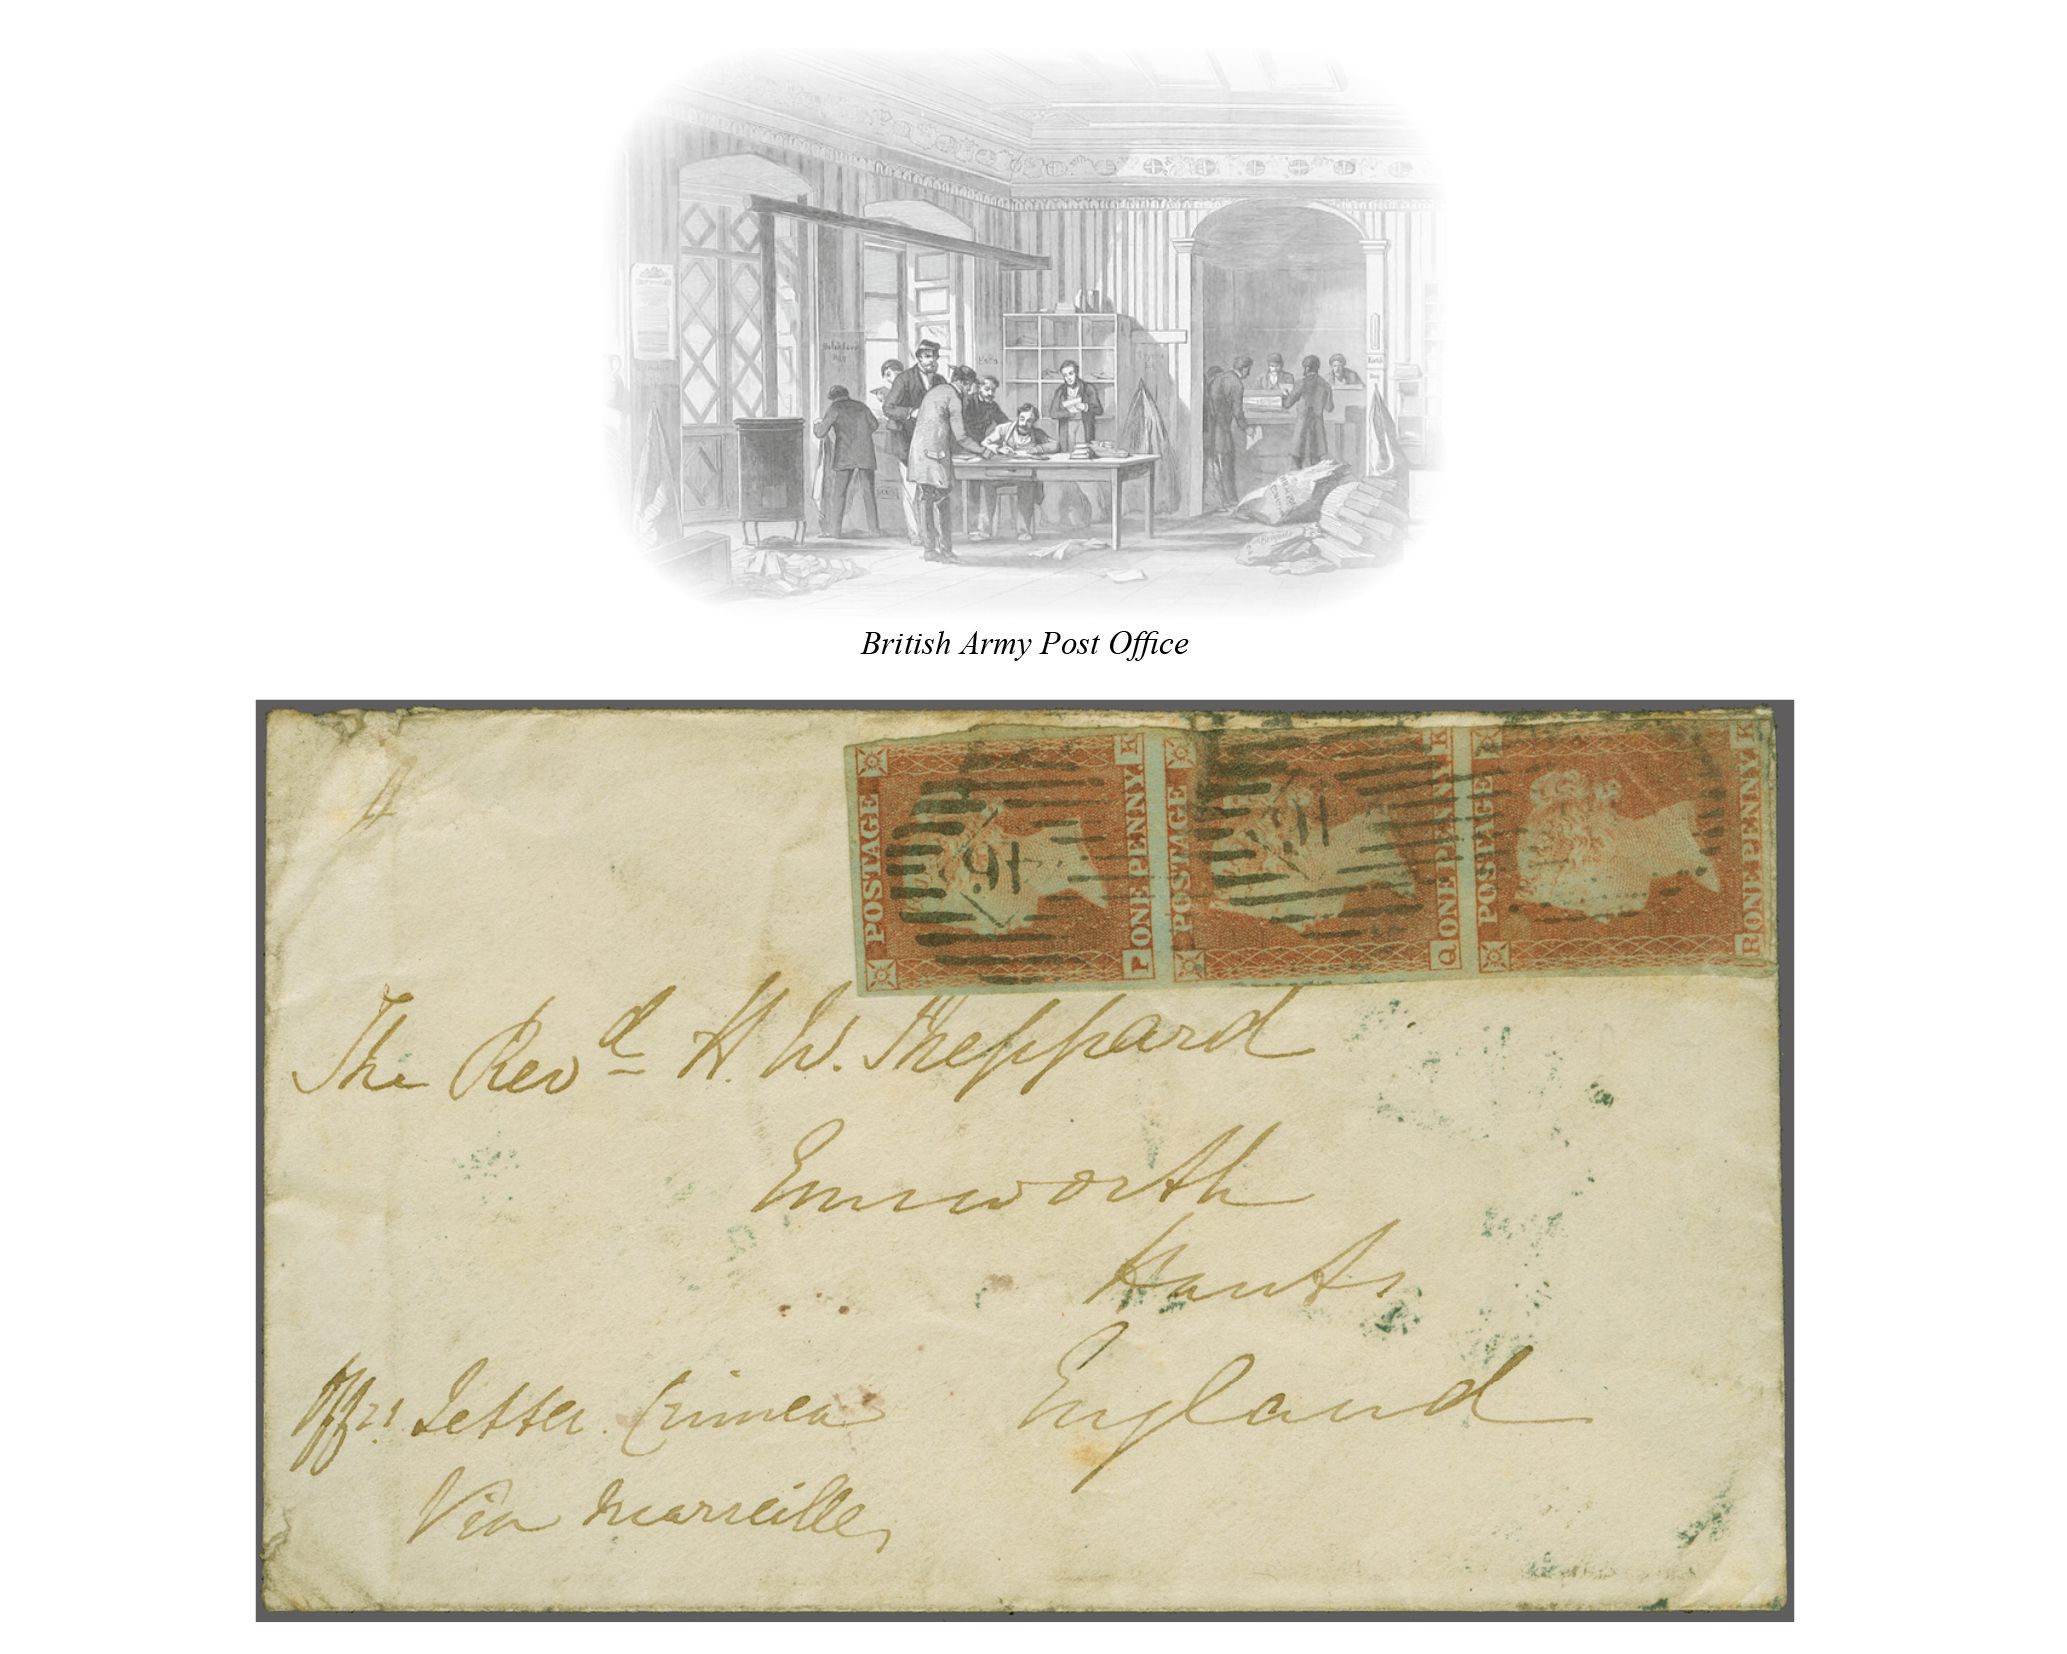 British Army Post Office
POSTAGE
ONE PENNY
P K
POSTAGE
ONE PENNY
Q K
POSTAGE
ONE PENNY
R K
The Revd H. W. Sheppard
Emsworth
Hants
England
Letter Crimea
Via Marseilles